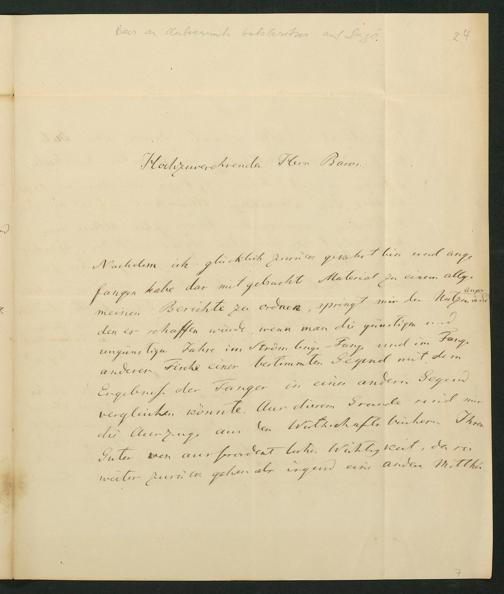 24
Hochzuverehrender Herr Baron.
Nachdem ich glücklich zurück gekehrt bin und ange
fangen habe das mitgebrachte Material zu einem allge
meinen Berichte zu ordnen, springt mir der Nutzen in die Augen
den es schaffen würde, wenn man die günstigen und
ungünstigen Jahre im Strömlings Fang und im Fang
anderer Fische einer bestimmten Gegend mit dem
Ergebniß der Fänge in einer andern Gegend
vergleichen könnte. Aus diesem Grunde sind mir
die Auszüge aus den Wirthschaftsbüchern Ihrer
Güter von ausserordentlicher Wichtigkeit, da sie
weiter zurück gehen als irgend eine andere Mitthei